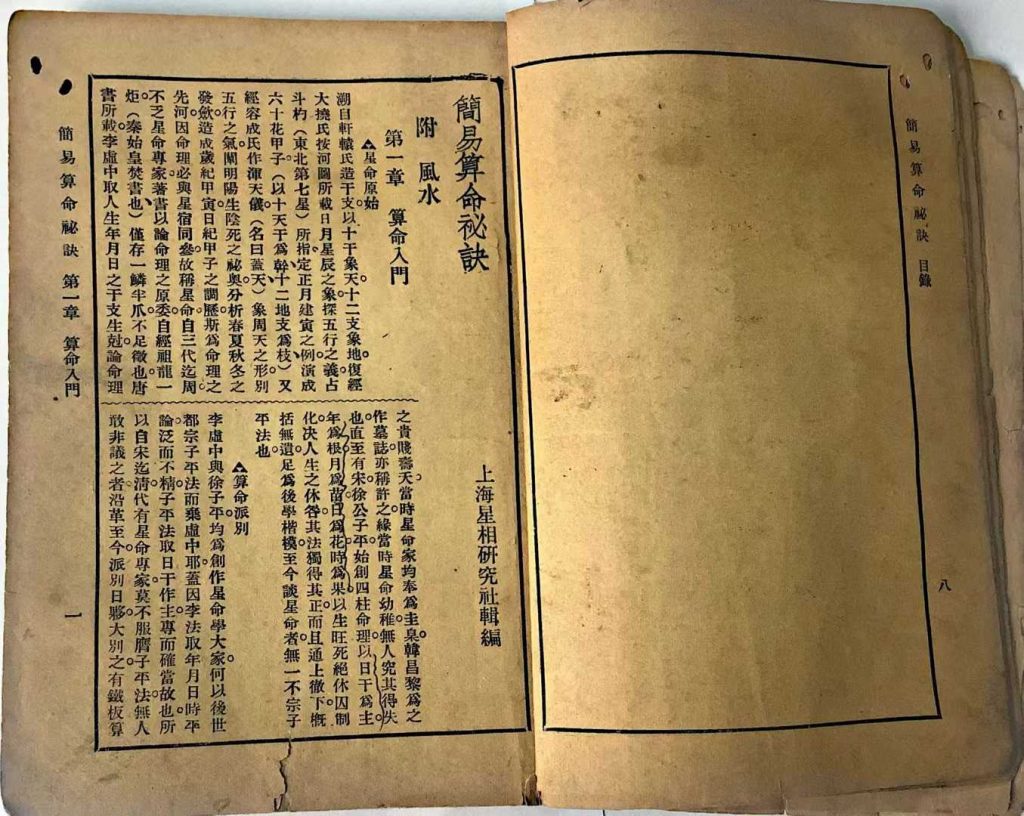 簡易算命祕訣　目錄
八
簡易算命祕訣
附　風水
上海星相研究社輯編
第一章　算命入門
▲星命原始
溯自軒轅氏造干支以十干象天十二支象地。復經
大撓氏按河圖所載日月星辰之象探五行之義占
斗杓（東北第七星）所指定正月建寅之例演成
六十花甲子（以十天干爲幹十二地支爲枝）又
經容成氏作渾天儀（名曰蓋天）象周天之形別
五行之氣闡明陽生陰死之祕奧分析春夏秋冬之
發斂造成歲紀甲寅日紀甲子之調歷斯爲命理之
先河因命理必與星宿同參故稱星命自三代迄周
不乏星命專家著書以論命理之原委自經祖龍一
炬（秦始皇焚書也）僅存一鱗半爪不足徵也唐
書所載李虛中取人生年月日之干支生尅論命理
之貴賤壽夭當時星命家均奉爲圭臬韓昌黎爲之
作墓誌亦稱許之緣當時星命幼稚無人究其得失
也直至有宋徐公子平始創四柱命理以日干爲主
年爲根月爲苗日爲花時爲果以生旺死絕休囚制
化決人生之休咎其法獨得其正而且通上徹下概
括無遺足爲後學楷模至今談星命者無一不宗子
平法也。
▲算命派別
李虛中與徐子平均爲創作星命學大家何以後世
都宗子平法而棄虛中耶蓋因李法取年月日時平
論泛而不精子平法取日干作主專而確當故也所
以自宋迄清代有星命專家莫不服膺子平法無人
敢非議之者沿革至今派別日夥大別之有鐵板算
簡易算命祕訣　第一章　算命入門
一